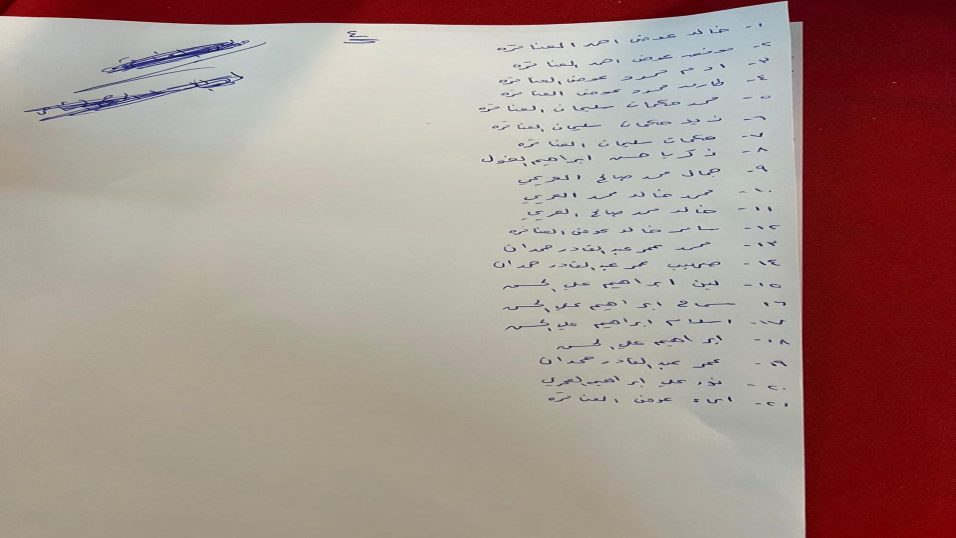 ٤
١- خالد عوض احمد العناتره
٢- موفق عوض احمد العناتره
٣- ادم محمود عوض العناتره
٤- طارق محمود عوض العناتره
٥- محمد حكمات سليمان العناتره
٦- زيد حكمات سليمان العناتره
٧- حكمات سليمان العناتره
٨- زكريا حسن ابراهيم الغول
٩- جمال محمد صالح العريمي
١٠- محمد خالد محمد العربي
١١- خالد محمد صالح العربي
١٢- سامر خالد عوض العناتره
١٣- محمد عمر عبد القادر حمدان
١٤- صهيب عمر عبد القادر حمدان
١٥- لين ابراهيم علي الحسن
١٦- سماح ابراهيم علي الحسن
١٧- اسلام ابراهيم علي الحسن
١٨- ابراهيم علي الحسن
١٩- عمر عبد القادر حمدان
٢٠- نور علي ابراهيم
٢١- اسماء عوض العناتره